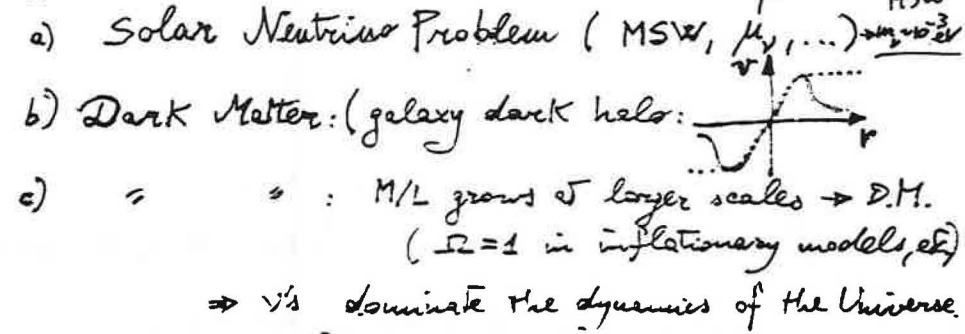 a) Solar Neutrino Problem ( MSW, μν, ...) → mν ~ 10⁻³ eV
MSW
b) Dark Matter: (galaxy dark halo:
v
r
c) " " : M/L grows @ larger scales → D.M.
( Ω = 1 in inflationary models, etc)
⇒ ν's dominate the dynamics of the Universe.